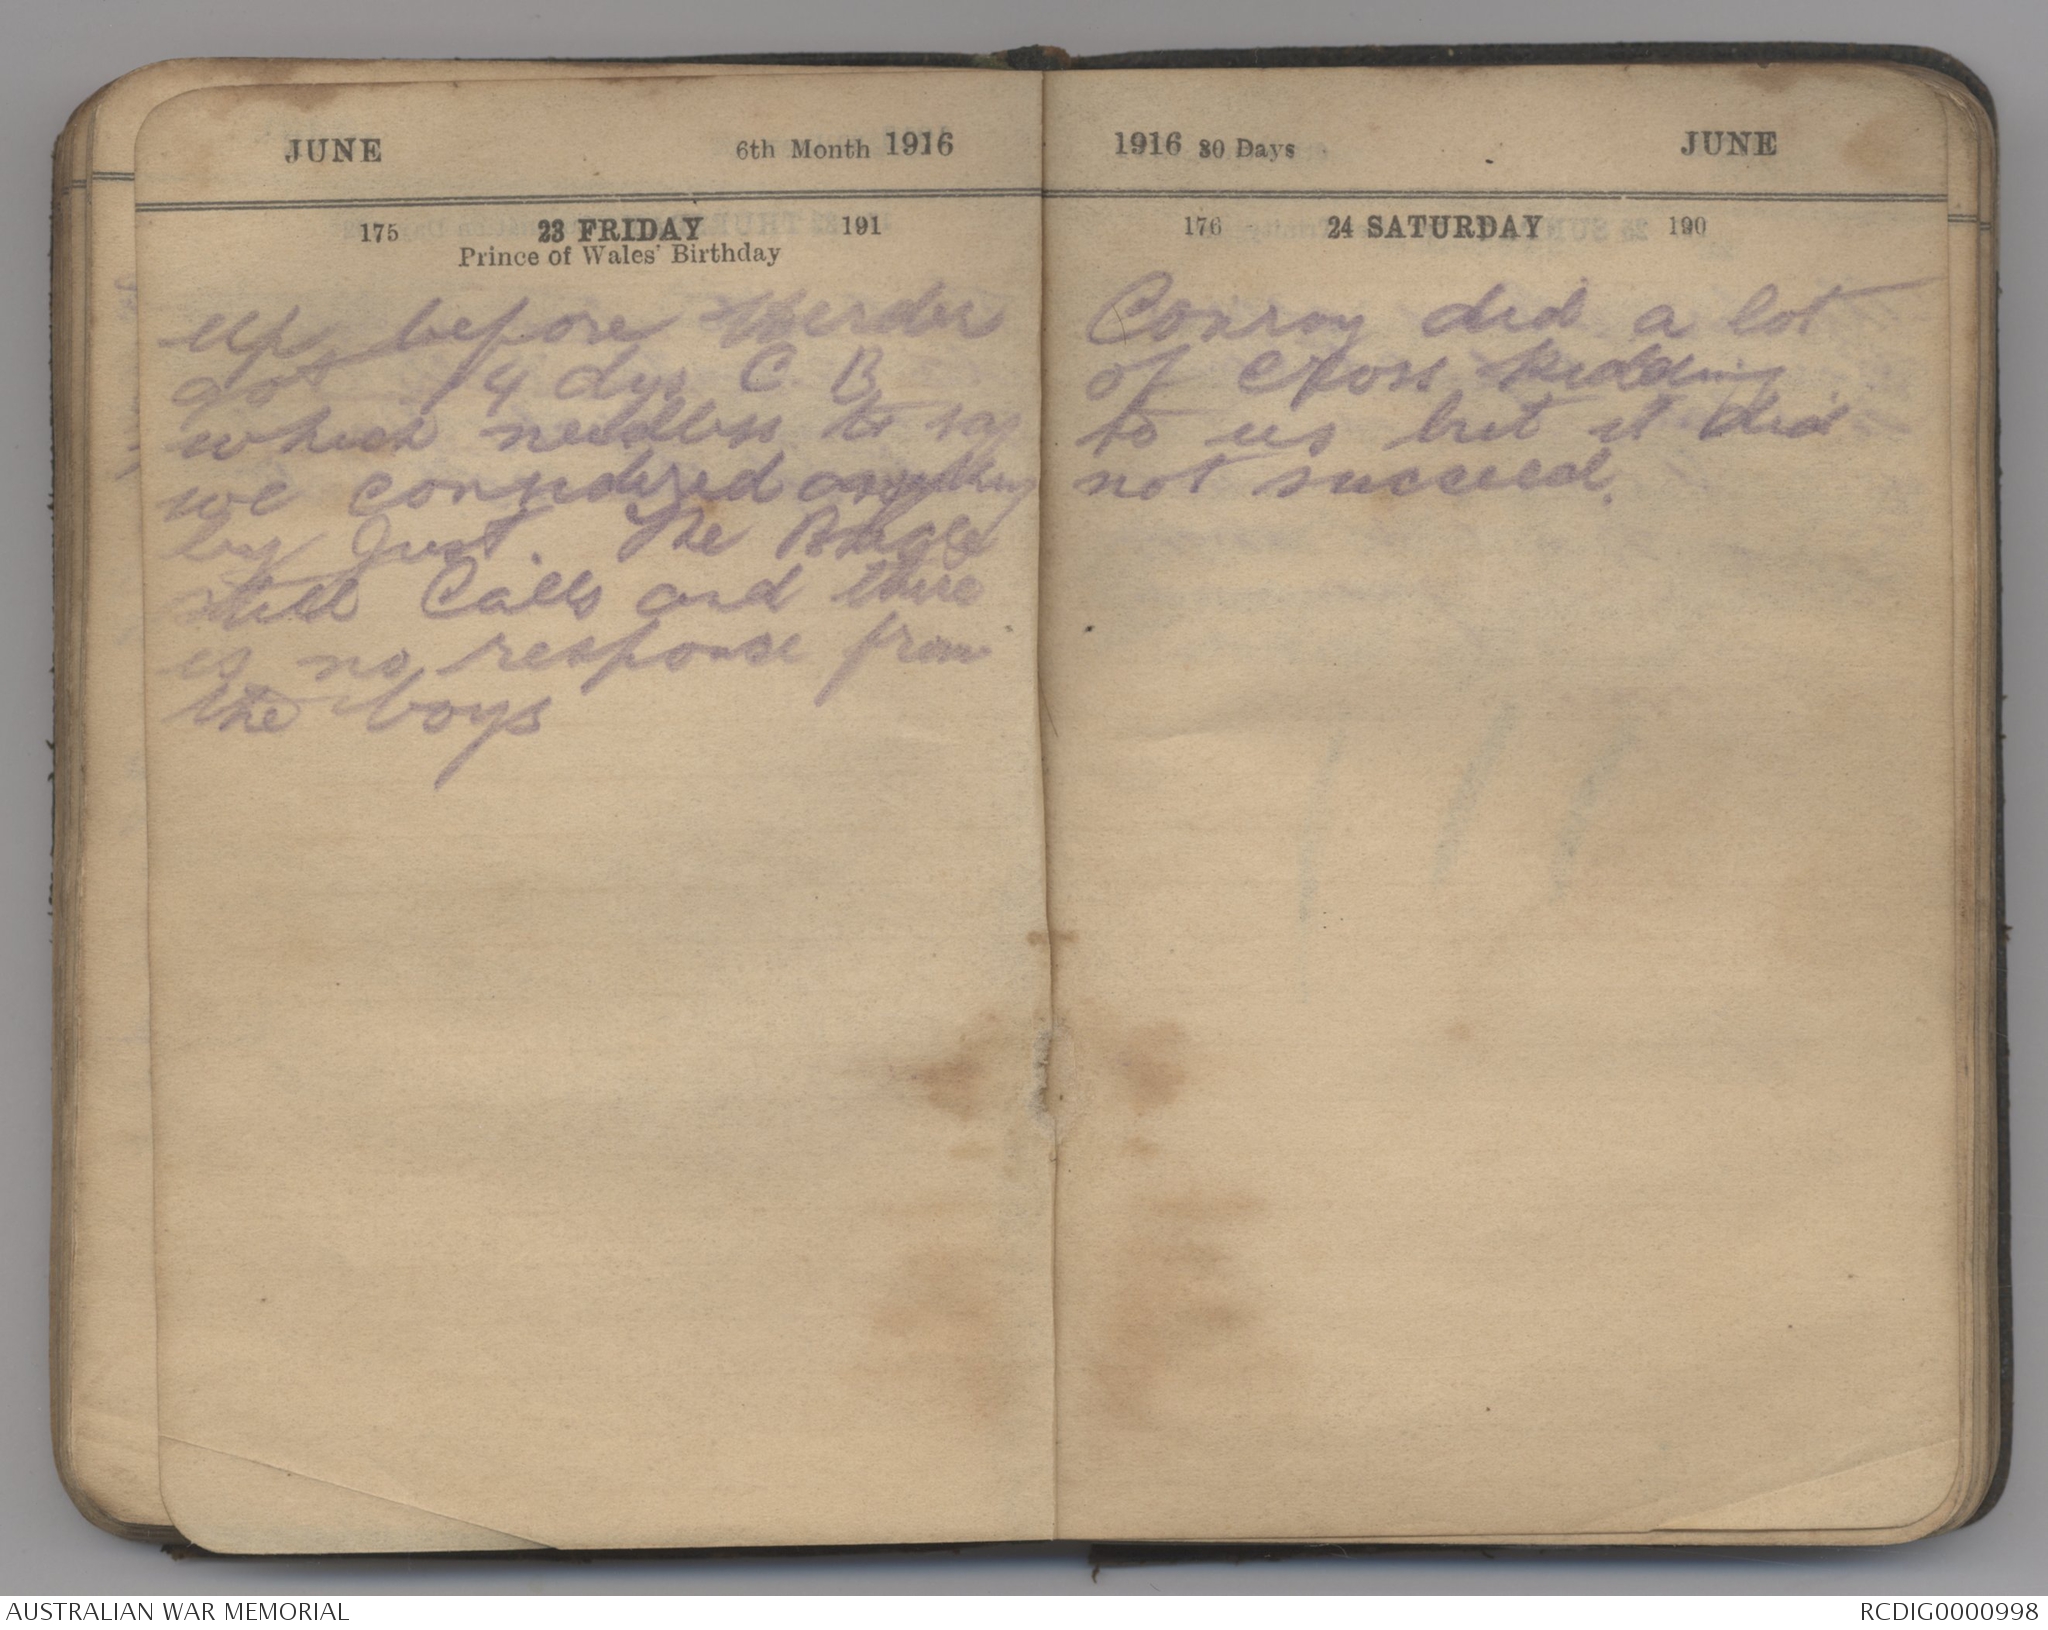 JUNE 6th Month 1916
175 23 FRIDAY 191
Prince of Wales' Birthday
Up before Herder
got 14 dys C. B
which needless to say
we considered anything
by Just. The Bugle
still Calls and there
is no response from
the boys
1916 30 Days JUNE
176 24 SATURDAY 190
Conroy did a lot
of cross kidding
to us but it did
not succeed.
AUSTRALIAN WAR MEMORIAL
RCDIG0000998